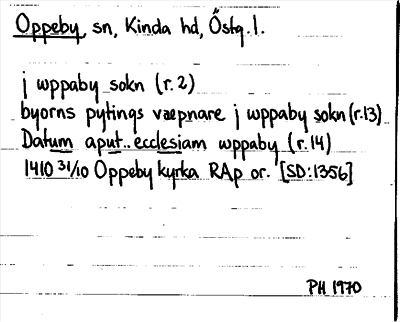 Oppeby, sn, Kinda hd, Östg.l.
j wppaby sokn (r.2)
byorns pytings væpnare j wppaby sokn (r.13)
Datum aput..ecclesiam wppaby (r.14)
1410 31/10 Oppeby kyrka RAp or. [SD:1356]
PH 1970